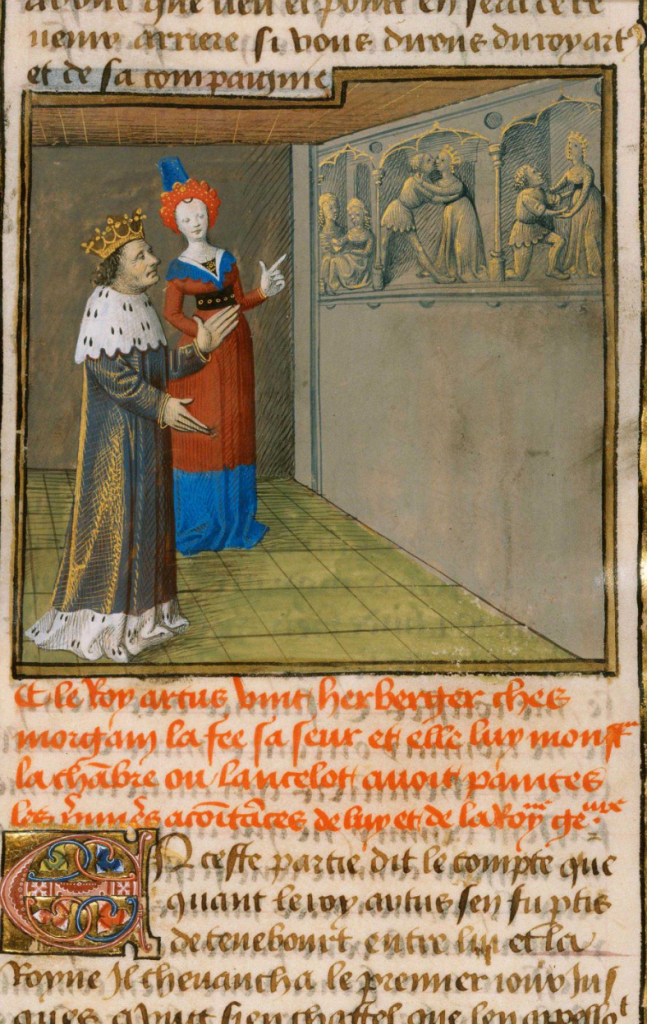 uenir arriere si vous dirons du roy art9
et de sa compaignie
Cõ le Roy artus vint herberger ches
morgain la fee sa seur et elle luy monstr
la chãbre ou lancelot avoit paintes
les acoĩtãces de luy et de la Royne ge
En ceste partie dit le compte que
quant le roy artus sen fu ptis
de tenebourt entre luy et la
Royne Il chevaucha le premier iour Jus
ques a vng sien chastel que len